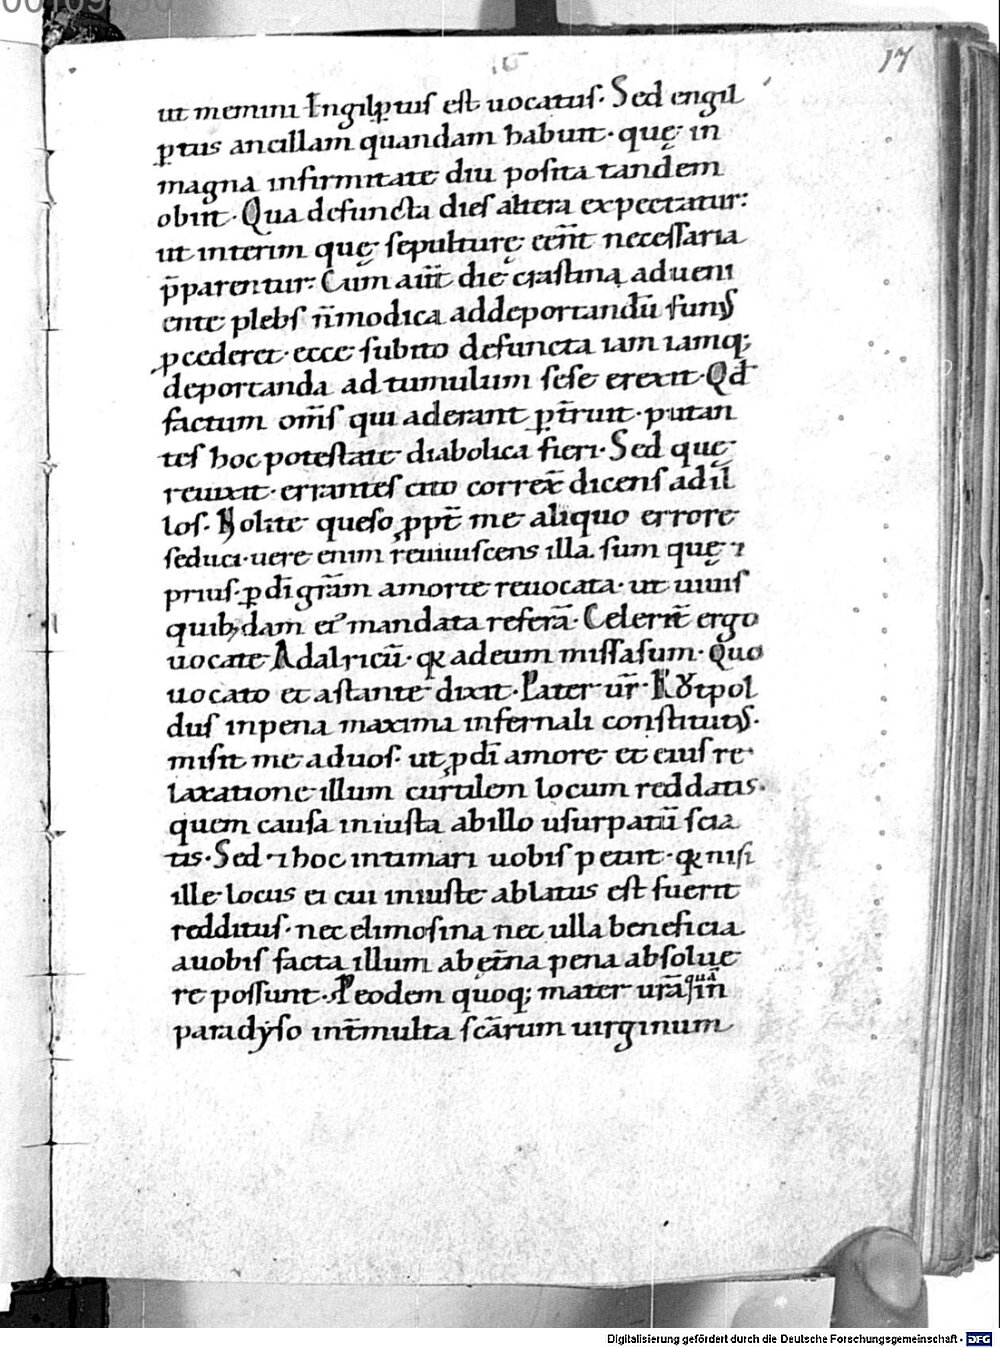 17
ut memini Engilp̱tus est uocatus. Sed engil
p̱tus ancillam quandam habuit. quę in
magna infirmitate diu posita tandem
obiit. Qua defuncta dies altera expectatur:
ut interim quę sepulturę eēnt necessaria
p̄pararentur: Cum aūt die crastina adueni
ente plebs n̄modica addeportandū funꝰ
ꝓcederet. ecce subito defuncta iam iamq;
deportanda ad tumulum sese erexit. Qđ
factum om̄s qui aderant p̱t̄ruit. putan
tes hoc potestate diabolica fieri. Sed quę
reuixit. errantes cito correx̄ dicens ad il
los. Nolite queso ꝓpt̄ me aliquo errore
seduci. uere enim reuiuiscens illa sum quę ⁊
prius. p̱ dī grām amorte reuocata. ut uiuis
quib;dam ei' mandata referā. Celerit̄ ergo
uocate Adalricū. qꝛ adeum missa sum. Quo
uocato et astante dixit. Pater ur̄ Rǒtpol
dus inpena maxima infernali constitutꝰ.
misit me aduos. ut ꝓ dī amore et eius re
laxatione illum curtilem locum reddatis.
quem causa iniusta abillo usurpatū scia
tis. Sed ⁊ hoc intimari uobis petiit. qꝛ nisi
ille locus ei cui iniuste ablatus est fuerit
redditus. nec elimosina nec ulla beneficia
auobis facta illum ab ęt̄na pena absolue
re possunt. Peodem quoq; mater urā quā in
paradyso int̄ multa scārum uirginum
Digitalisierung gefördert durch die Deutsche Forschungsgemeinschaft - DFG